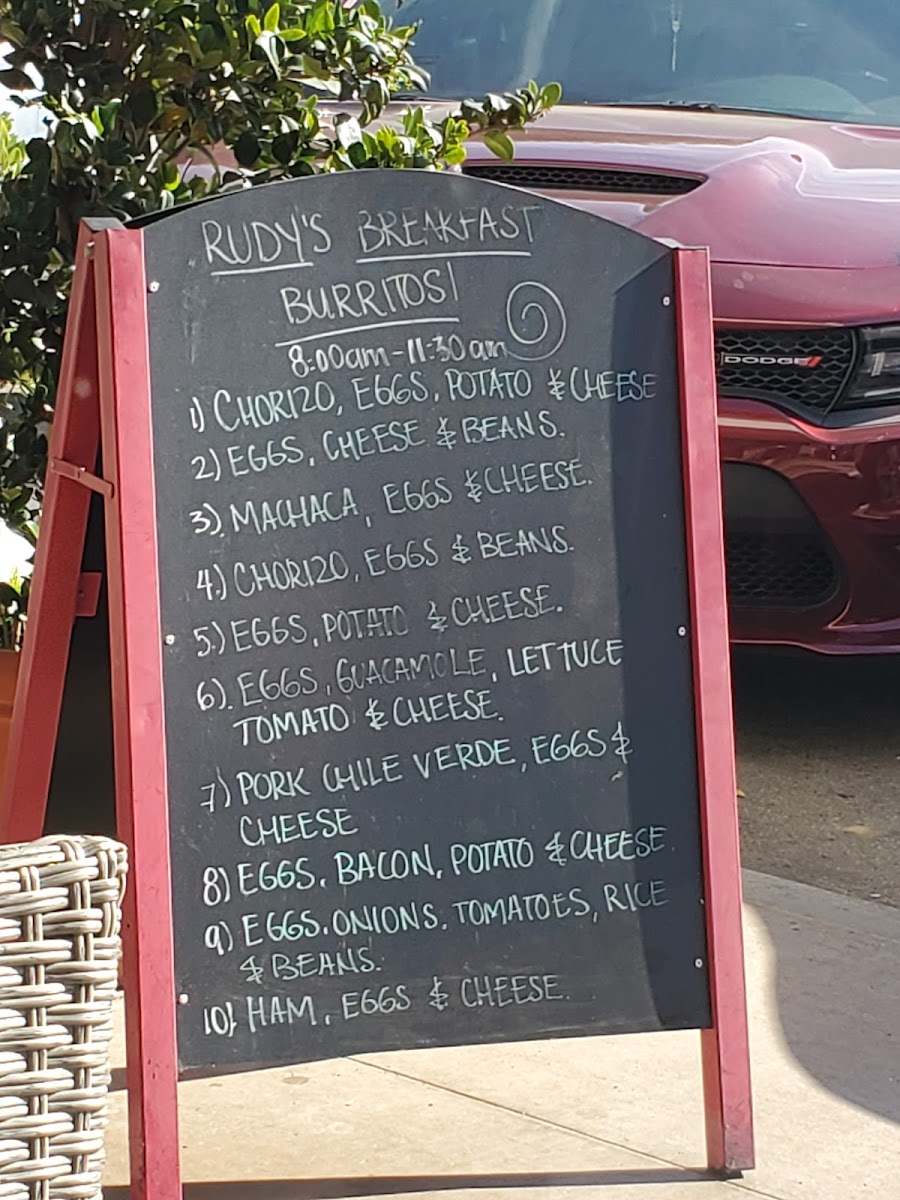 RUDY'S BREAKFAST
BURRITOS!
8:00am-11:30am
1) CHORIZO, EGGS, POTATO & CHEESE
2) EGGS, CHEESE & BEANS.
3). MACHACA, EGGS & CHEESE.
4.) CHORIZO, EGGS & BEANS.
5.) EGGS, POTATO & CHEESE.
6). EGGS, GUACAMOLE, LETTUCE
TOMATO & CHEESE.
7) PORK CHILE VERDE, EGGS &
CHEESE
8) EGGS, BACON, POTATO & CHEESE.
9) EGGS, ONIONS, TOMATOES, RICE
& BEANS.
10). HAM, EGGS & CHEESE.
DODGE